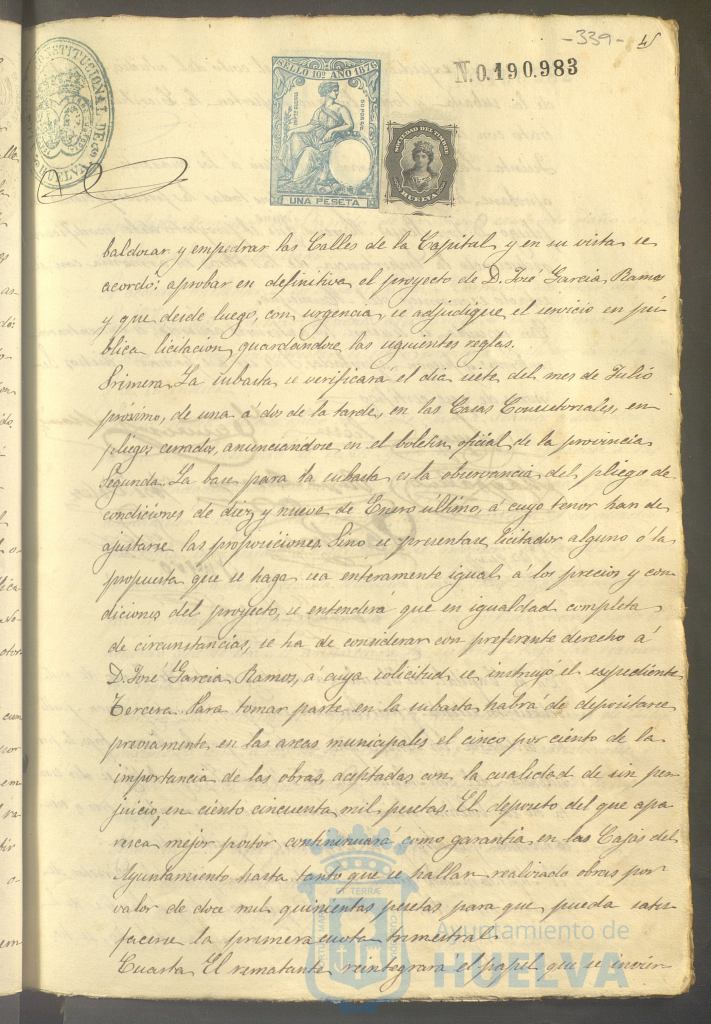 -339-
N.0.190.983
CONSTITUCIONAL DE
HUELVA
SELLO 10º AÑO 1876
UNA PESETA
SOCIEDAD DEL TIMBRE
HUELVA
baldosar y empedrar las Calles de la Capital y en su vista se
acordó: aprobar en definitiva el proyecto de D. José Garcia Ramos
y que desde luego, con urgencia, se adjudique el servicio en pú-
blica licitacion, guardandose las siguientes reglas.
Primera. La subasta se verificará el dia siete del mes de Julio
próximo, de una á dos de la tarde, en las Casas Consistoriales, en
pliegos cerrados, anunciandose en el boletin oficial de la provincia
Segunda. La base para la subasta es la observancia del pliego de
condiciones de diez y nueve de Enero último, á cuyo tenor han de
ajustarse las proposiciones. Sino se presentase licitador alguno ó la
propuesta que se haga sea enteramente igual á los precios y con-
diciones del proyecto, se entenderá que en igualdad completa
de circunstancias, se ha de considerar con preferente derecho á
D. José Garcia Ramos, á cuya solicitud se instruyó el espediente
Tercera. Para tomar parte en la subasta habrá de depositarse
previamente en las arcas municipales el cinco por ciento de la
importancia de las obras, aceptadas con la cualidad de sin per-
juicio, en ciento cincuenta mil pesetas. El deposito del que apa-
resca mejor postor continuará como garantia en las Cajas del
Ayuntamiento hasta tanto que se hallan realizado obras por
valor de doce mil quinientas pesetas para que pueda satis-
facerse la primera cuota trimestral.
Cuarta. El rematante reintegrará el papel que se invier-
ET TERRÆ
Ayuntamiento de
HUELVA